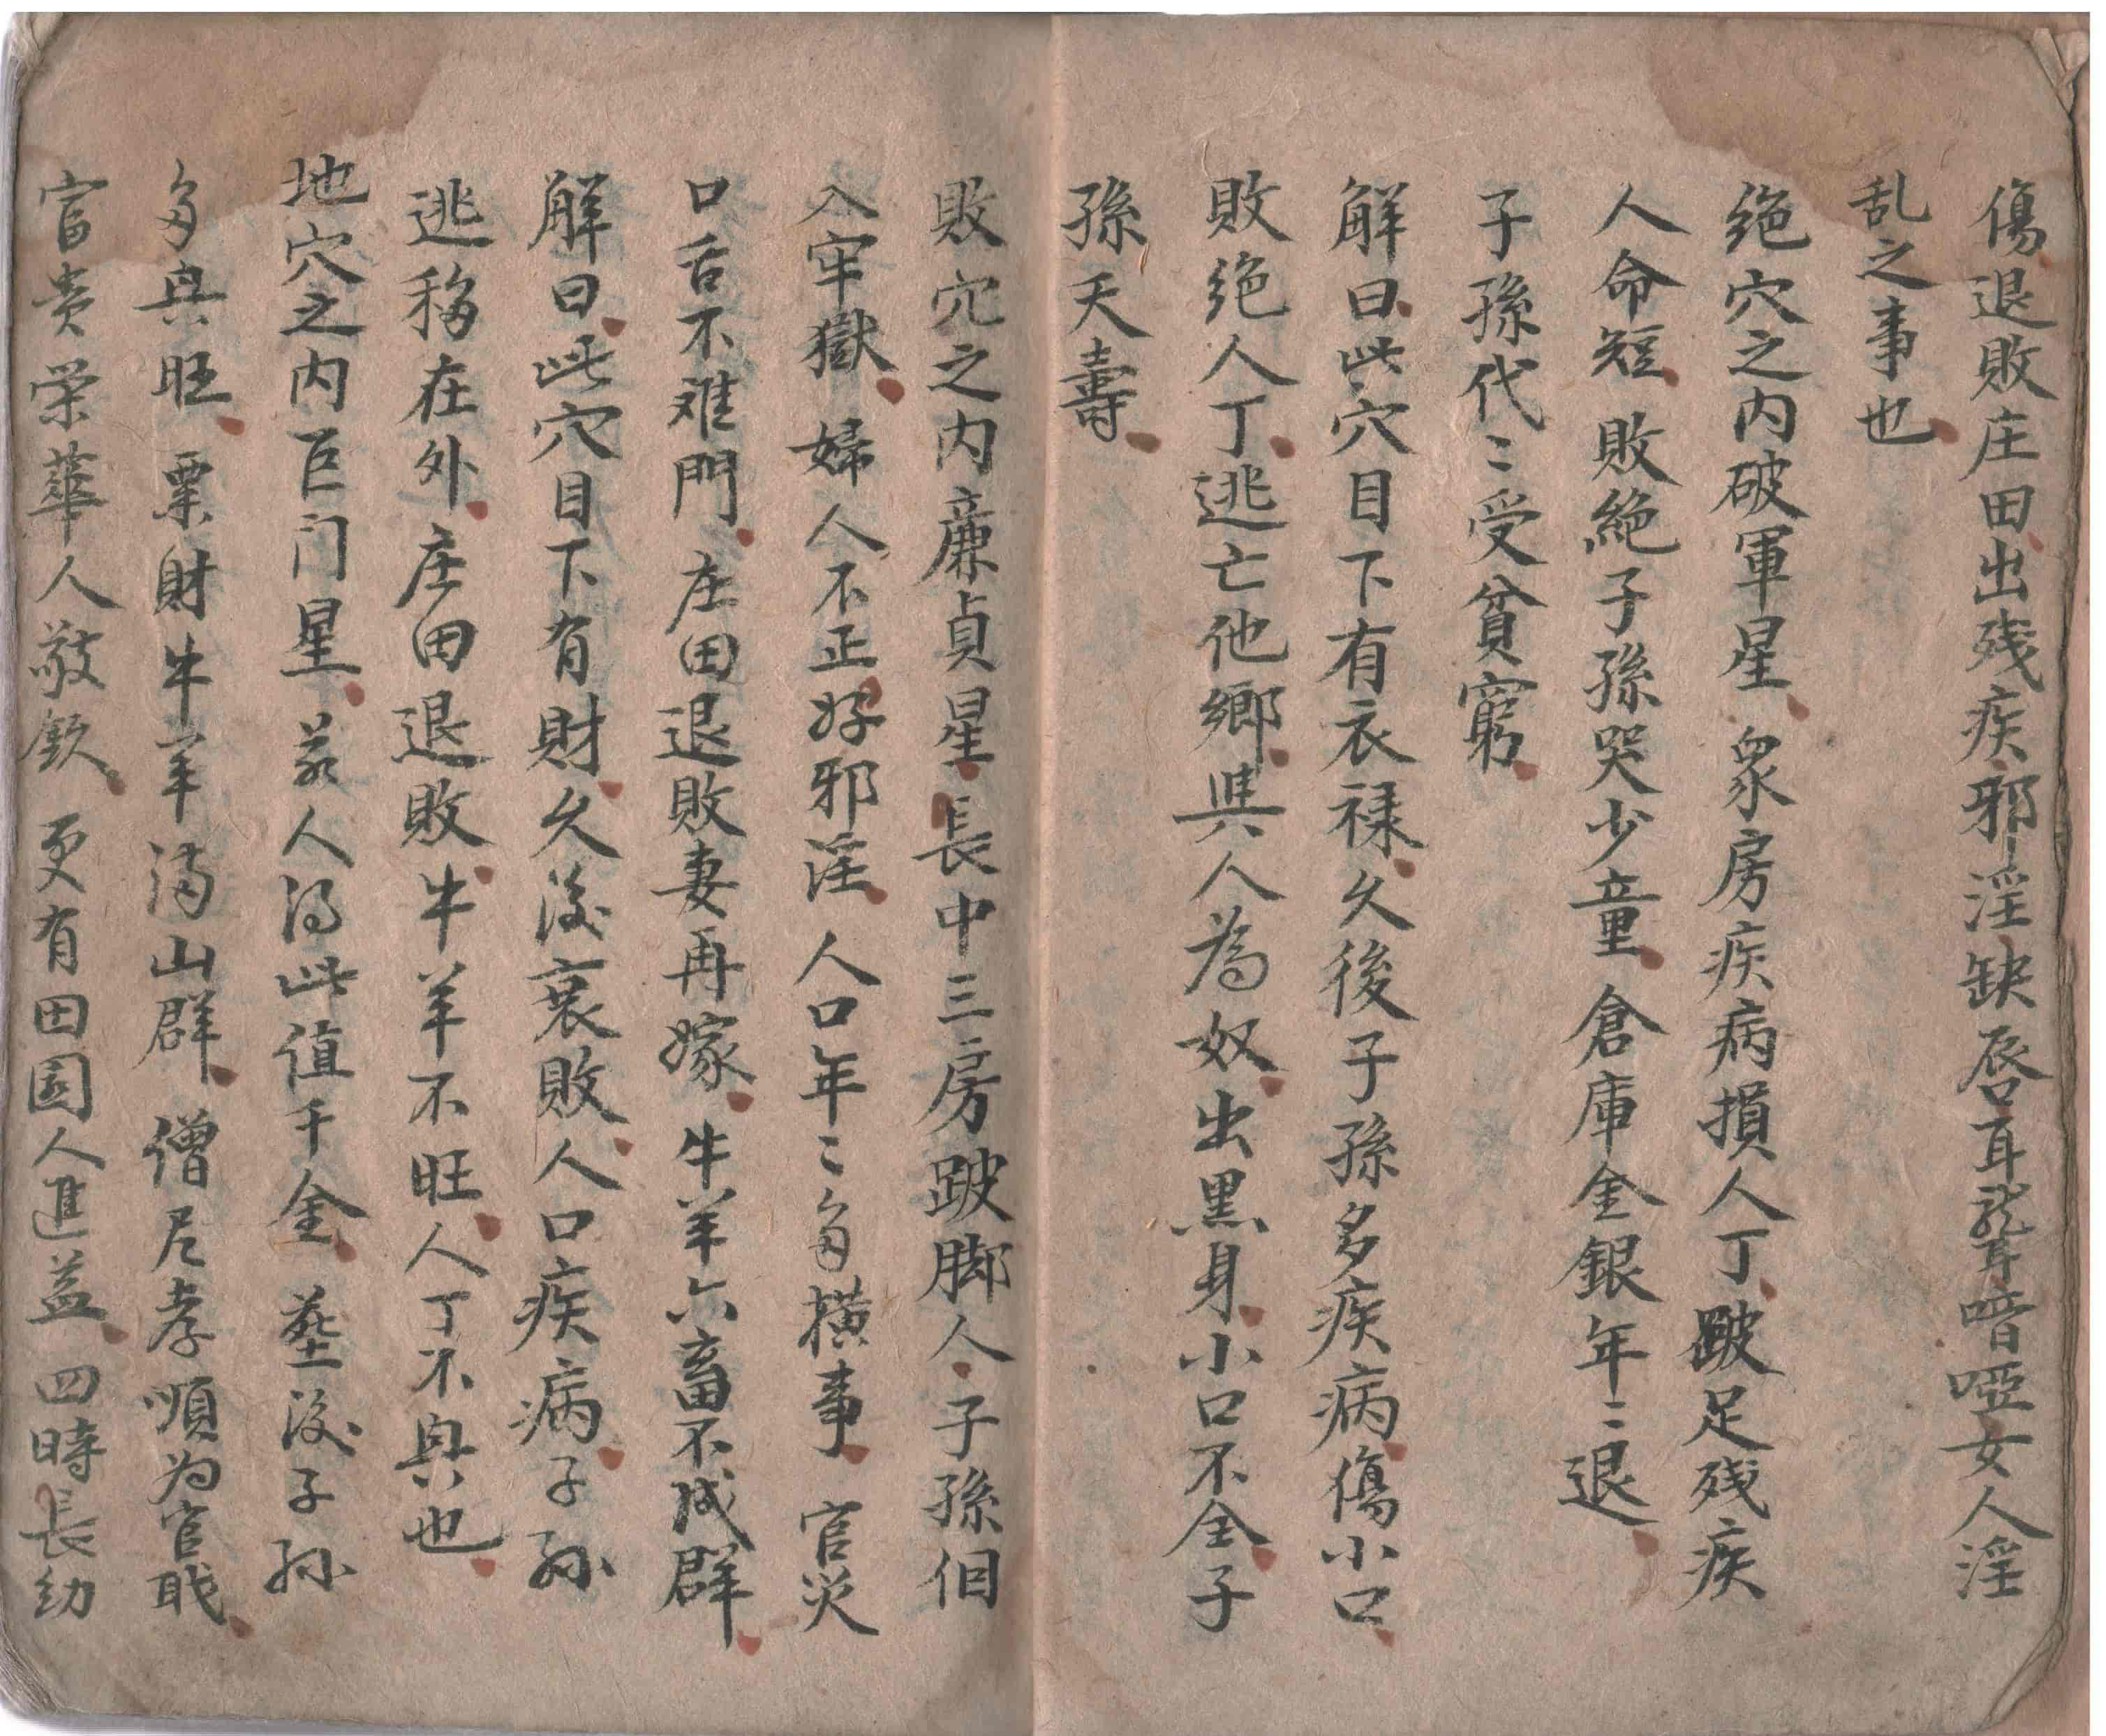 傷退敗庄田出残疾邪淫缺唇耳聾喑啞女人淫
乱之事也
绝穴之内破軍星眾房疾病損人丁跛足残疾
人命短敗絕子孫哭少童倉庫金銀年〻退
子孫代〻受貧窮
解曰此穴目下有衣禄久後子孫多疾病傷小口
敗绝人丁逃亡他鄉與人為奴出黑身小口不全子
孫夭壽
敗穴之内廉貞星長中三房跛脚人子孫徂
入牢獄婦人不正好邪淫人口年〻多橫事官災
口舌不难門庄田退敗妻再嫁牛羊六畜不成群
解曰此穴目下有財久後衰敗人口疾病子孙
逃移在外庄田退敗牛羊不旺人丁不興也
地穴之内巨门星葬人得此值千金塟後子孙
多兴旺粟財牛羊满山群僧尼孝順为官戝
富贵荣華人敬欽更有田園人進益四時長幼